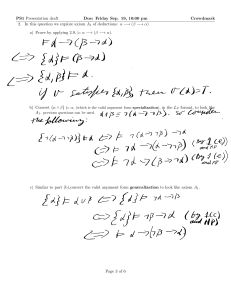 PS1 Presentation draft Due: Friday Sep. 19, 10:00 pm Crowdmark
2. In this question we explore axiom A₁ of deductions: α → (β → α)
a) Prove by applying 2.8, ⊨ α → (β → α).
⊨ α → (β → α)
⟺ {α} ⊨ (β → α)
⟺ {α, β} ⊨ α.
if v satisfies {α, β} then v(α) = T.
b) Convert {α ∧ β} ⊨ α, (which is the valid argument form specialization), in the L₀ format, to look like
A₁. previous question can be used. α ∧ β = ¬(α → ¬β). so consider
the following:
{¬(α → ¬β)} ⊨ α ⟺ ⊨ ¬(α → ¬β) → α
⟺ ⊨ ¬α → (α → ¬β)
⟺ ⊨ ¬α →
c) Similar to part (b) convert the valid argument form generalization to look like axiom A₁.
{α} ⊨ α ∪ β ⟺ {α} ⊨ ¬α → β
⟺ {α} ⊨ ¬β → α
⟺ ⊨ α → (¬β → α)
Page 3 of 6